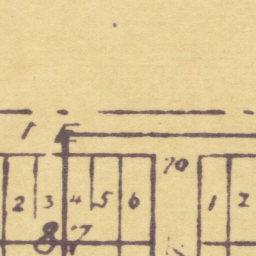 1 E
70
2 3 4 5 6 1 2
87